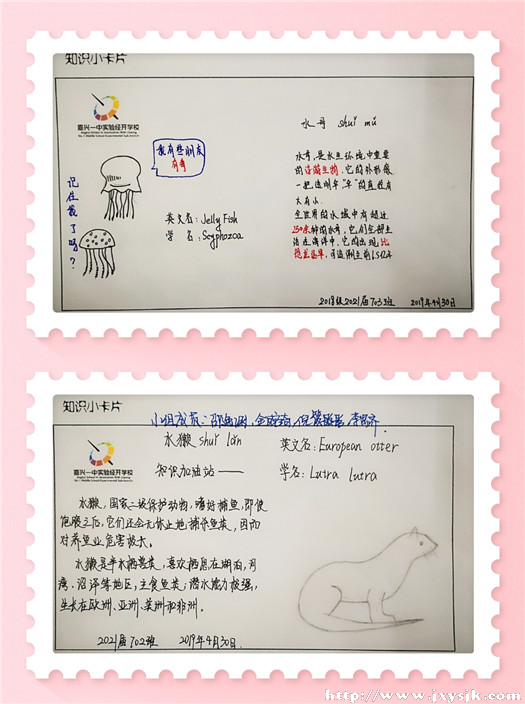 知识小卡片
嘉兴一中实验经开学校
水母 shuǐ mǔ
我有些朋友
有毒
记住我了吗?
英文名: Jelly Fish
学 名: Scyphozoa
水母,是水生环境中重要
的浮游生物,它的外形像
一把透明伞,"伞"的直径有
大有小。
全世界的水域中有超过
250余种的水母,它们全部生
活在海洋中,它的出现比
恐龙还早,可追溯至前6.5亿年
2018级2021届703班 2019年4月30日
知识小卡片
小组成员:
水獭 shuǐ lǎn
英文名: European otter
嘉兴一中实验经开学校
知识加油站——
学名: Lutra lutra
水獭,国家二级保护动物,嗜好捕鱼,即使
饱腹之后,它们还会无休止地捕杀鱼类,因而
对养鱼业危害较大。
水獭是半水栖兽类,喜欢栖息在湖泊,河
湾、沼泽等地区,主食鱼类;潜水能力极强,
生长在欧洲、亚洲、美洲和非洲。
2021届702班 2019年4月30日.
http://www.jxysjk.com